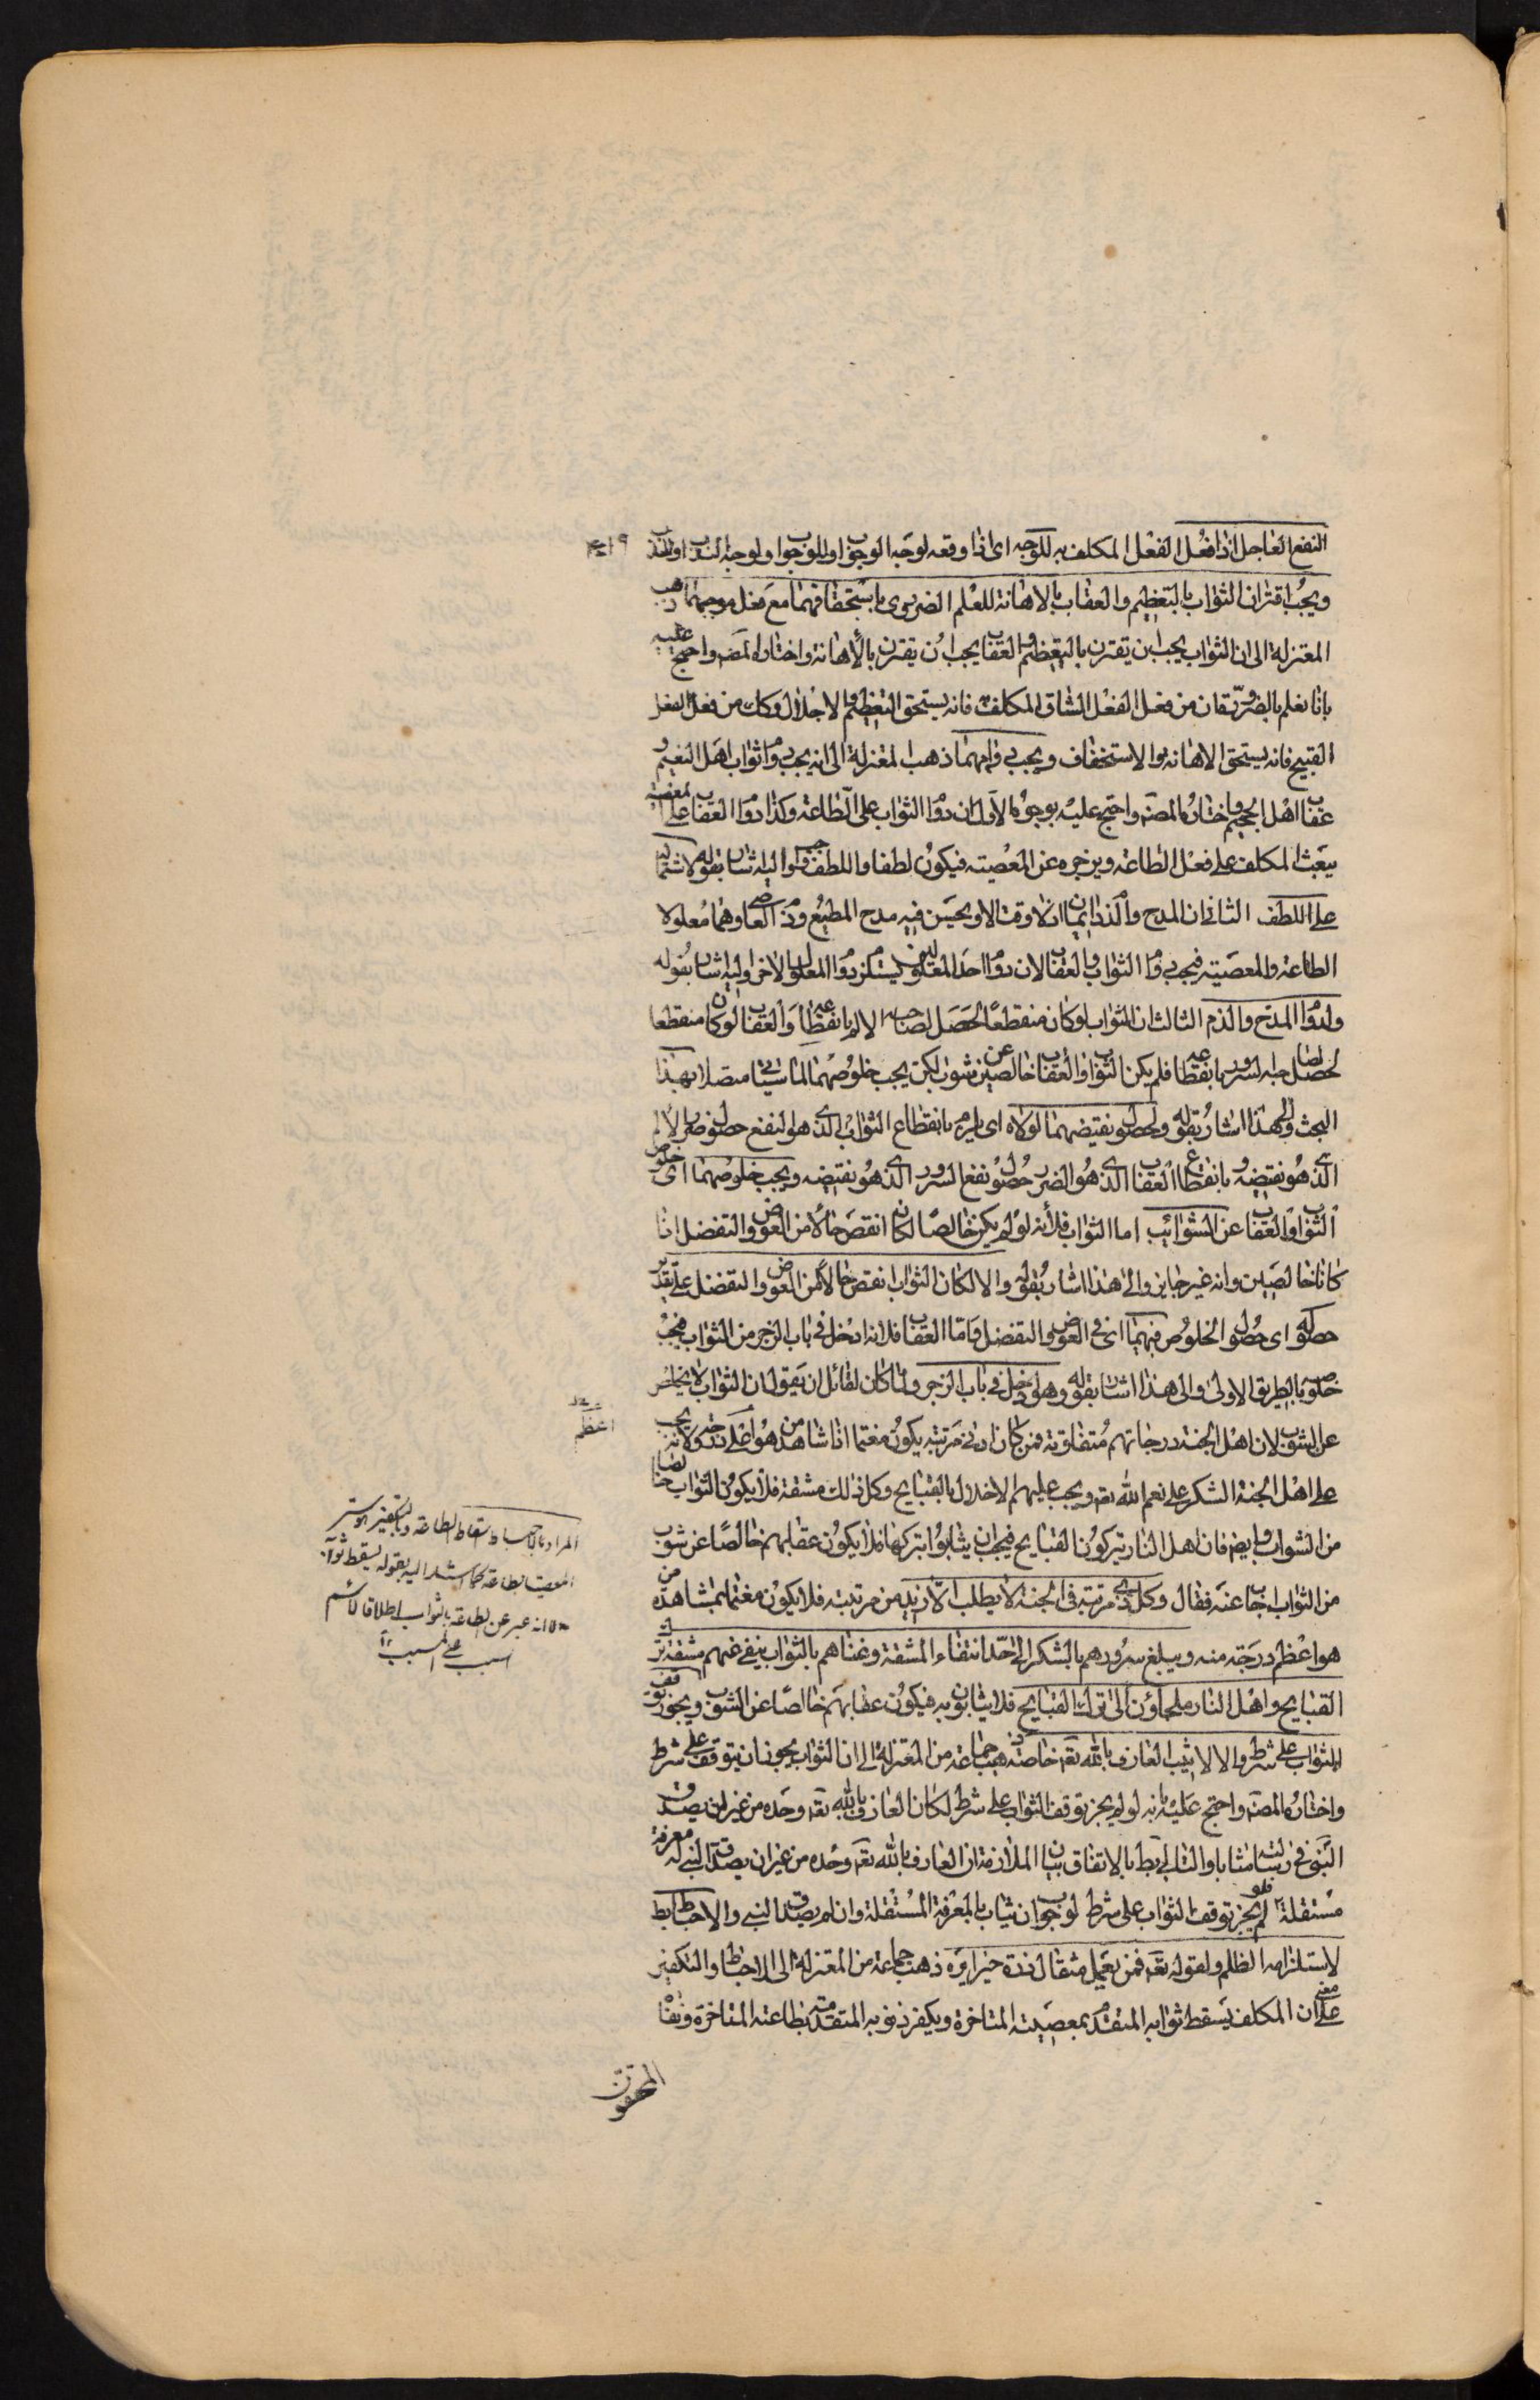 النفع العاجل اذا فعل الفعل المكلف به للوجه اى اذا وقعه لوجه الوجوب او للوجوب او لوجه الندب او للندب
ويجب اقتران الثواب بالتعظيم والعقاب بالاهانة للعلم الضرورى باستحقاقهما مع فعل موجبهما ذهب
المعتزلة الى ان الثواب يجب ان يقترن بالتعظيم والعقاب يجب ان يقترن بالاهانة واختاره المصـ واحتج عليه
بانا نعلم بالضرورة ان من فعل الفعل الشاق المكلف به فانه يستحق التعظيم والاجلال وكل من فعل الفعل
القبيح فانه يستحق الاهانة والاستخفاف ويجب دوامهما ذهب المعتزلة الى انه يجب دوام ثواب اهل النعيم و
عقاب اهل الجحيم واختاره المصـ واحتج عليه بوجوه الاول ان دوام الثواب على الطاعة وكذا دوام العقاب على المعصية
يبعث المكلف على فعل الطاعة ويزجره عن المعصية فيكون لطفا واللطف واجب واليه اشار بقوله لاشتماله
على اللطف الثانى ان المدح والذم دائمان اذ لا وقت الا ويحسن فيه مدح المطيع وذم العاصى وهما معلولا
الطاعة والمعصية فيجب دوام الثواب والعقاب لان دوام احد المعلولين يستلزم دوام المعلول الاخر واليه اشار بقوله
ولدوام المدح والذم الثالث ان الثواب لو كان منقطعا لحصل لصاحبه الالم بانقطاعه والعقاب لو كان منقطعا
لحصل لصاحبه السرور بانقطاعه فلم يكن الثواب والعقاب خالصين عن شوب لكن يجب خلوصهما لما سياتى متصلا بهذا
البحث والى هذا اشار بقوله ولحصول نقيضهما لولاه اى يلزم بانقطاع الثواب الذى هو النفع حصول ضرر الالم
الذى هو نقيضه وبانقطاع العقاب الذى هو الضرر حصول نفع السرور الذى هو نقيضه ويجب خلوصهما اى خلوص
الثواب والعقاب عن الشوائب اما الثواب فلانه لو لم يكن خالصا لكان انقص حالا من العوض والتفضل اذا
كانا خالصين وانه غير جايز والى هذا اشار بقوله والا لكان الثواب انقص حالا من العوض والتفضل على تقدير
حصوله اى حصول الخلوص فيهما اى فى العوض والتفضل فاما العقاب فلانه ادخل فى باب الزجر من الثواب فيجب
خلوصه بالطريق الاولى والى هذا اشار بقوله وهو ادخل فى باب الزجر ولما كان لقائل ان يقول ان الثواب لا يخلص
عن الشوب لان اهل الجنة درجاتهم متفاوتة فمن كان ادنى مرتبة يكون مغتما اذا شاهد من هو اعلى درجة ولانه يجب
على اهل الجنة الشكر على نعم الله تعـ ويجب عليهم الاخلال بالقبايح وكل ذلك مشقة فلا يكون الثواب خالصا
من الشوائب وايضا فان اهل النار يتركون القبايح فيجب ان يثابوا بتركها فلا يكون عقابهم خالصا عن شوب
من الثواب اجاب عنه فقال وكل ذى مرتبة فى الجنة لا يطلب الازيد من مرتبته فلا يكون مغتما بمشاهدة من
هو اعظم درجة منه ويبلغ سرورهم بالشكر الى حد انتفاء المشقة وغناهم بالثواب ينفى عنهم مشقة ترك
القبايح واهل النار ملجاؤن الى ترك القبايح فلا يثابون به فيكون عقابهم خالصا عن الشوب ويجوز توقف
الثواب على شرط والا لاثيب العارف بالله تعـ خاصة ذهب جماعة من المعتزلة الى ان الثواب يجوز ان يتوقف على شرط
واختاره المصـ واحتج عليه بانه لو لم يجز توقف الثواب على شرط لكان العارف بالله تعـ وحده من غير ان يصدق
النبى فى رسالته مثابا والتالى بط بالاتفاق بيان الملازمة ان العارف بالله تعـ وحده من غير ان يصدق النبى له معرفة
مستقلة فلو لم يجز توقف الثواب على شرط لوجب ان يثاب بالمعرفة المستقلة وان لم يصدق النبى والاحباط بط
لاستلزامه الظلم ولقوله تعـ فمن يعمل مثقال ذرة خيرا يره ذهب جماعة من المعتزلة الى الاحباط والتكفير
على معنى ان المكلف يسقط ثوابه المتقدم بمعصيته المتاخرة ويكفر ذنوبه المتقدمة بطاعته المتاخرة ونفا
المحققون
اعظم
المراد بالاحباط اسقاط الطاعة وبالتكفير ستر
المعصية بطاعة كما اشار اليه بقوله يسقط ثوابه
الا انه عبر عن الطاعة بالثواب اطلاقا لاسم
السبب على المسبب